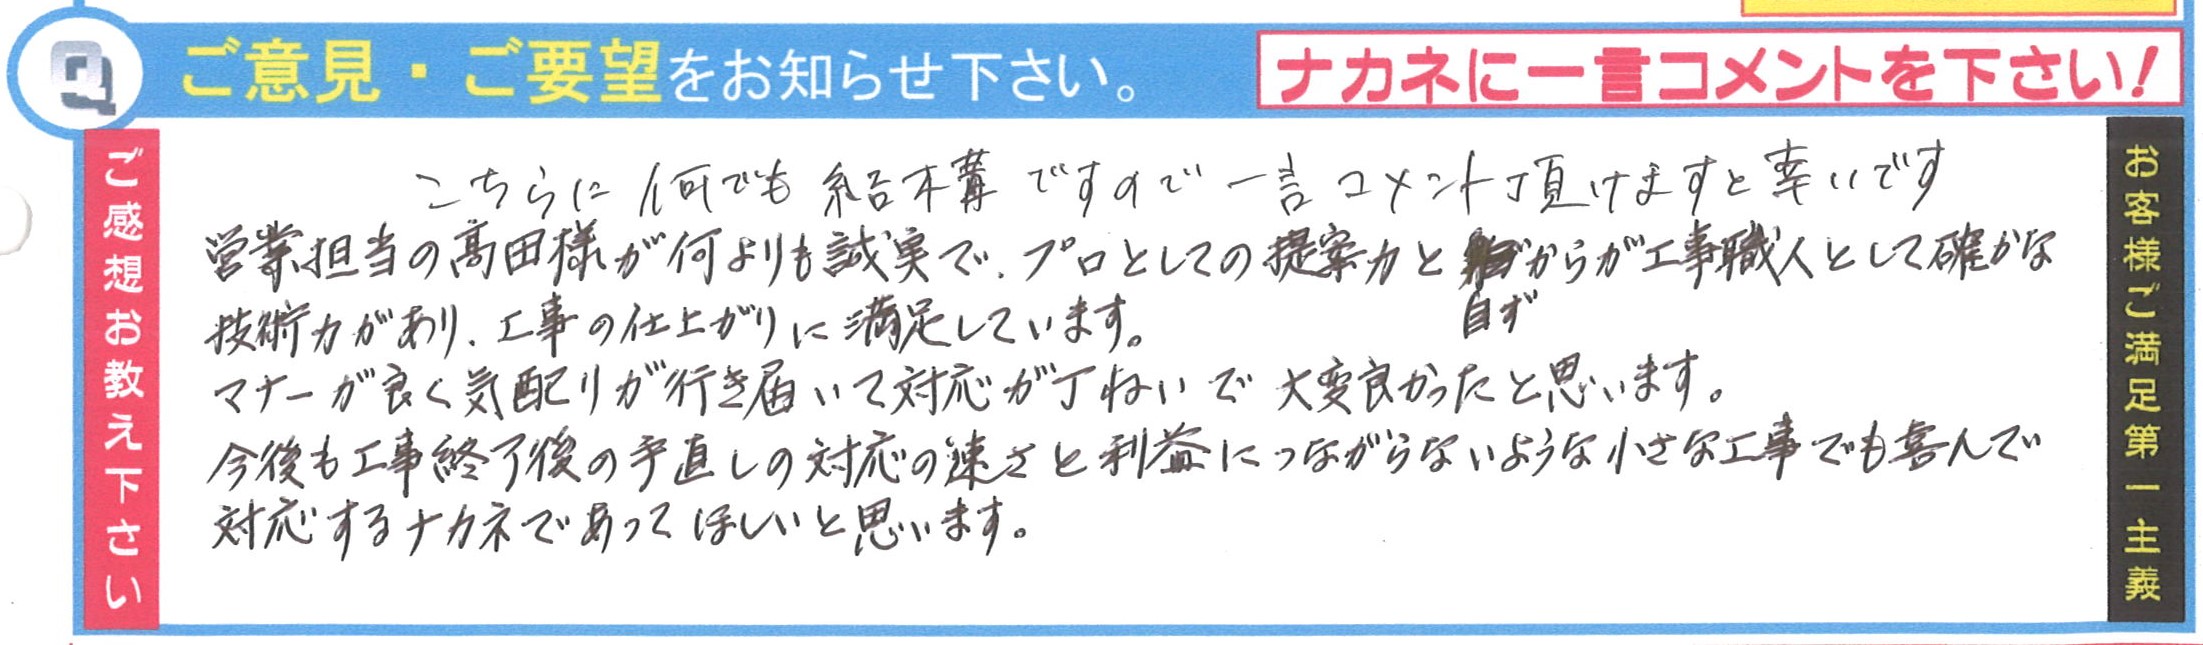 Q ご意見・ご要望をお知らせ下さい。 ナカネに一言コメントを下さい!
ご感想お教え下さい
こちらに何でも結構ですので一言コメント頂けますと幸いです
営業担当の髙田様が何よりも誠実で、プロとしての提案力と からが工事職人として確かな
自ず
技術力があり、工事の仕上がりに満足しています。
マナーが良く気配りが行き届いて対応が丁ねいで大変良かったと思います。
今後も工事終了後の手直しの対応の速さと利益につながらないような小さな工事でも喜んで
対応するナカネであってほしいと思います。
お客様ご満足第一主義